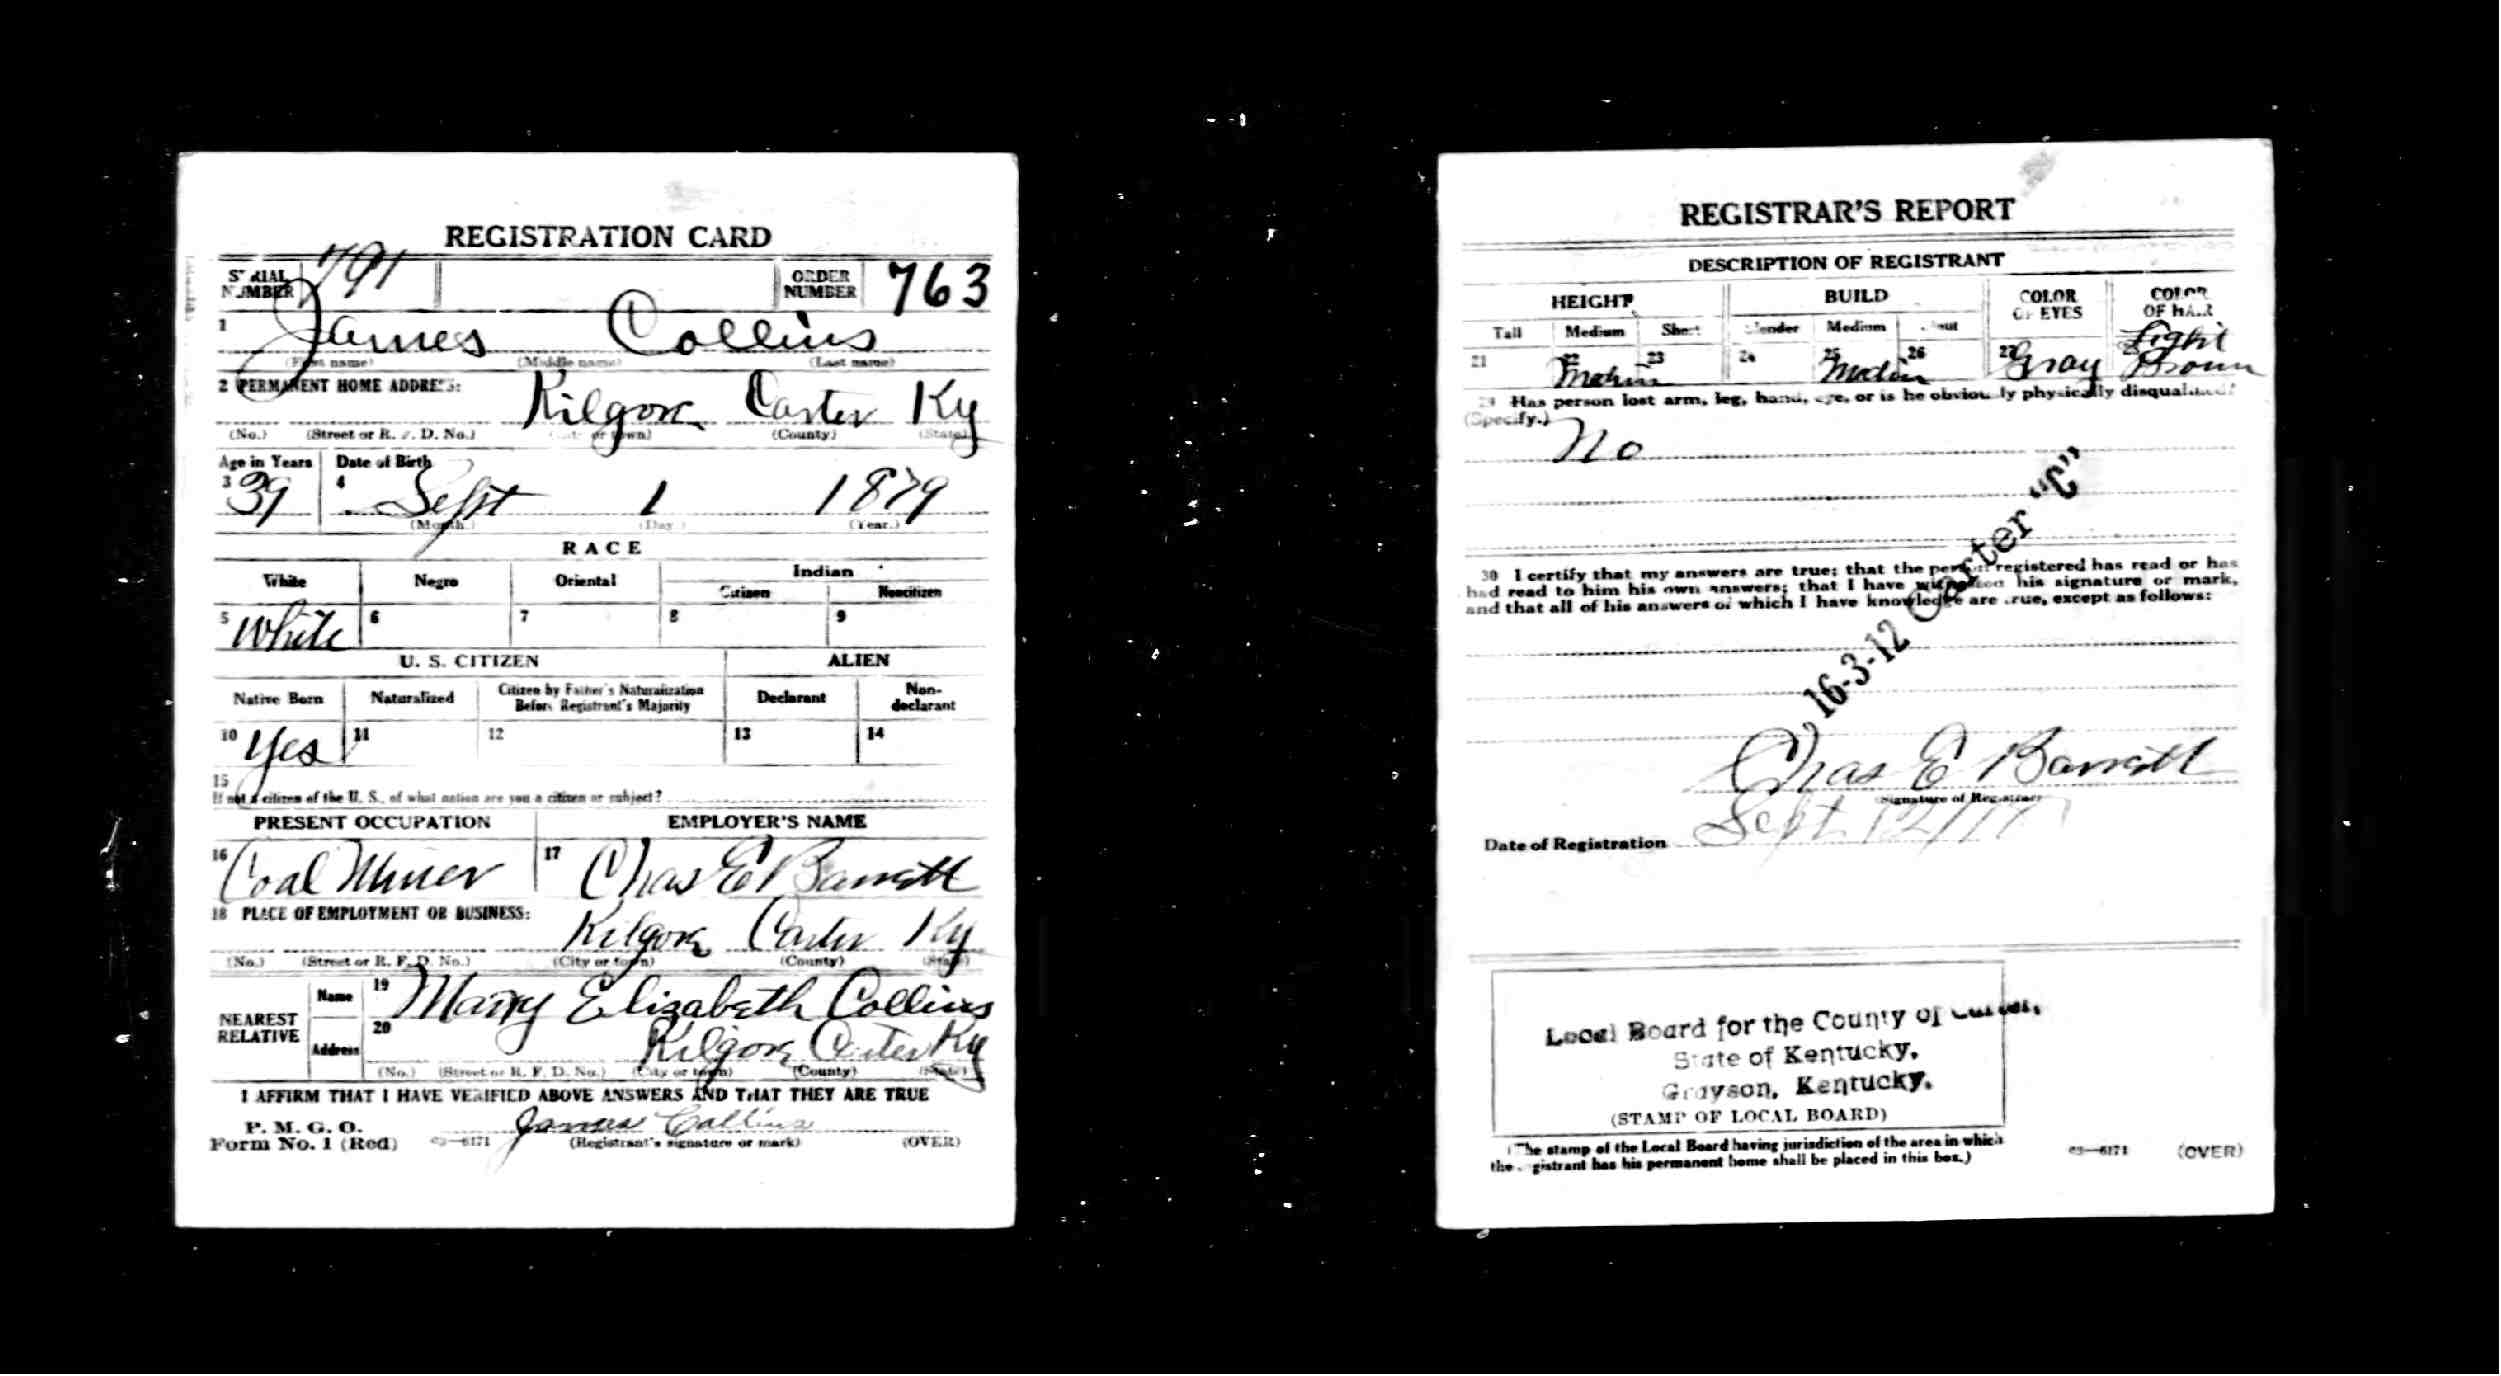 REGISTRATION CARD
SERIAL NUMBER 791 ORDER NUMBER 763
1 James Collins
(First name) (Middle name) (Last name)
2 PERMANENT HOME ADDRESS: Kilgore Carter Ky
(No.) (Street or R. F. D. No.) (City or town) (County) (State)
Age in Years Date of Birth
3 39 4 Sept 1 1879
(Month.) (Day.) (Year.)
RACE
White Negro Oriental Indian
Citizen Noncitizen
5 White 6 7 8 9
U. S. CITIZEN ALIEN
Native Born Naturalized Citizen by Father's Naturalization Before Registrant's Majority Declarant Non-declarant
10 Yes 11 12 13 14
15
If not a citizen of the U. S., of what nation are you a citizen or subject?
PRESENT OCCUPATION EMPLOYER'S NAME
16 Coal Miner 17 Chas E Barrett
18 PLACE OF EMPLOYMENT OR BUSINESS:
Kilgore Carter Ky
(No.) (Street or R. F. D. No.) (City or town) (County) (State)
NEAREST RELATIVE
Name 19 Mary Elizabeth Collins
Address 20 Kilgore Carter Ky
(No.) (Street or R. F. D. No.) (City or town) (County) (State)
I AFFIRM THAT I HAVE VERIFIED ABOVE ANSWERS AND THAT THEY ARE TRUE
P. M. G. O.
Form No. 1 (Red) 03—6171 James Collins
(Registrant's signature or mark) (OVER)
REGISTRAR'S REPORT
DESCRIPTION OF REGISTRANT
HEIGHT BUILD COLOR OF EYES COLOR OF HAIR
Tall Medium Short Slender Medium Stout
21 22 Medium 23 24 25 Medium 26 27 Gray 28 Light Brown
29 Has person lost arm, leg, hand, eye, or is he obviously physically disqualified?
(Specify.)
No
30 I certify that my answers are true; that the person registered has read or has
had read to him his own answers; that I have witnessed his signature or mark,
and that all of his answers of which I have knowledge are true, except as follows:
16-3-12 Carter "C"
Chas E Barrett
(Signature of Registrar)
Date of Registration Sept 12/17
Local Board for the County of Carter,
State of Kentucky,
Grayson, Kentucky.
(STAMP OF LOCAL BOARD)
(The stamp of the Local Board having jurisdiction of the area in which
the registrant has his permanent home shall be placed in this box.)
03—6171 (OVER)